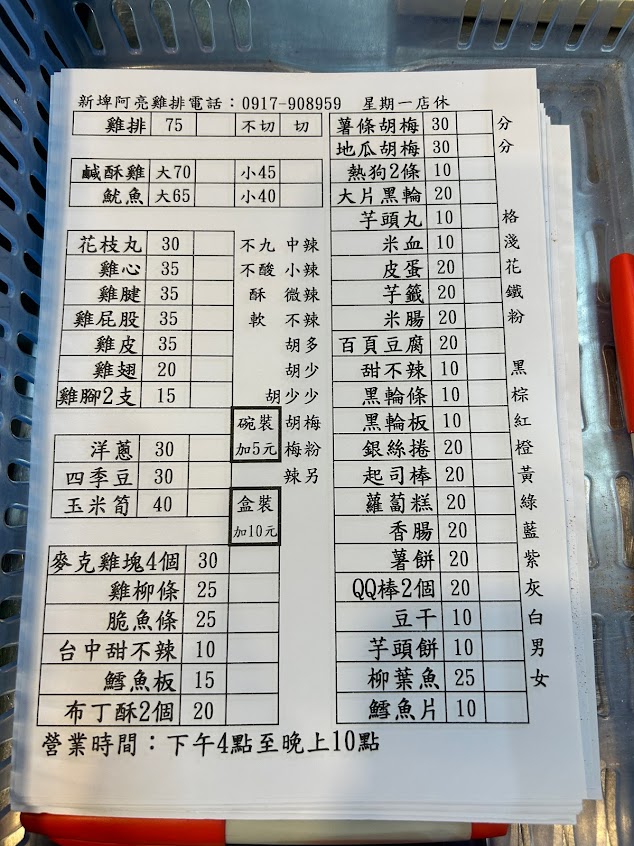 新埤阿亮雞排電話：0917-908959 星期一店休
雞排 75 不切 切
鹹酥雞 大70 小45
魷魚 大65 小40
花枝丸 30 不九 中辣
雞心 35 不酸 小辣
雞腱 35 酥 微辣
雞屁股 35 軟 不辣
雞皮 35 胡多
雞翅 20 胡少
雞腳2支 15 胡少少
碗裝 胡梅
洋蔥 30 加5元 梅粉
四季豆 30 辣另
玉米筍 40 盒裝
加10元
麥克雞塊4個 30
雞柳條 25
脆魚條 25
台中甜不辣 10
鱈魚板 15
布丁酥2個 20
薯條胡梅 30 分
地瓜胡梅 30 分
熱狗2條 10
大片黑輪 20
芋頭丸 10 格
米血 10 淺
皮蛋 20 花
芋籤 20 鐵
米腸 20 粉
百頁豆腐 20
甜不辣 10 黑
黑輪條 10 棕
黑輪板 10 紅
銀絲捲 20 橙
起司棒 20 黃
蘿蔔糕 20 綠
香腸 20 藍
薯餅 20 紫
QQ棒2個 20 灰
豆干 10 白
芋頭餅 10 男
柳葉魚 25 女
鱈魚片 10
營業時間：下午4點至晚上10點